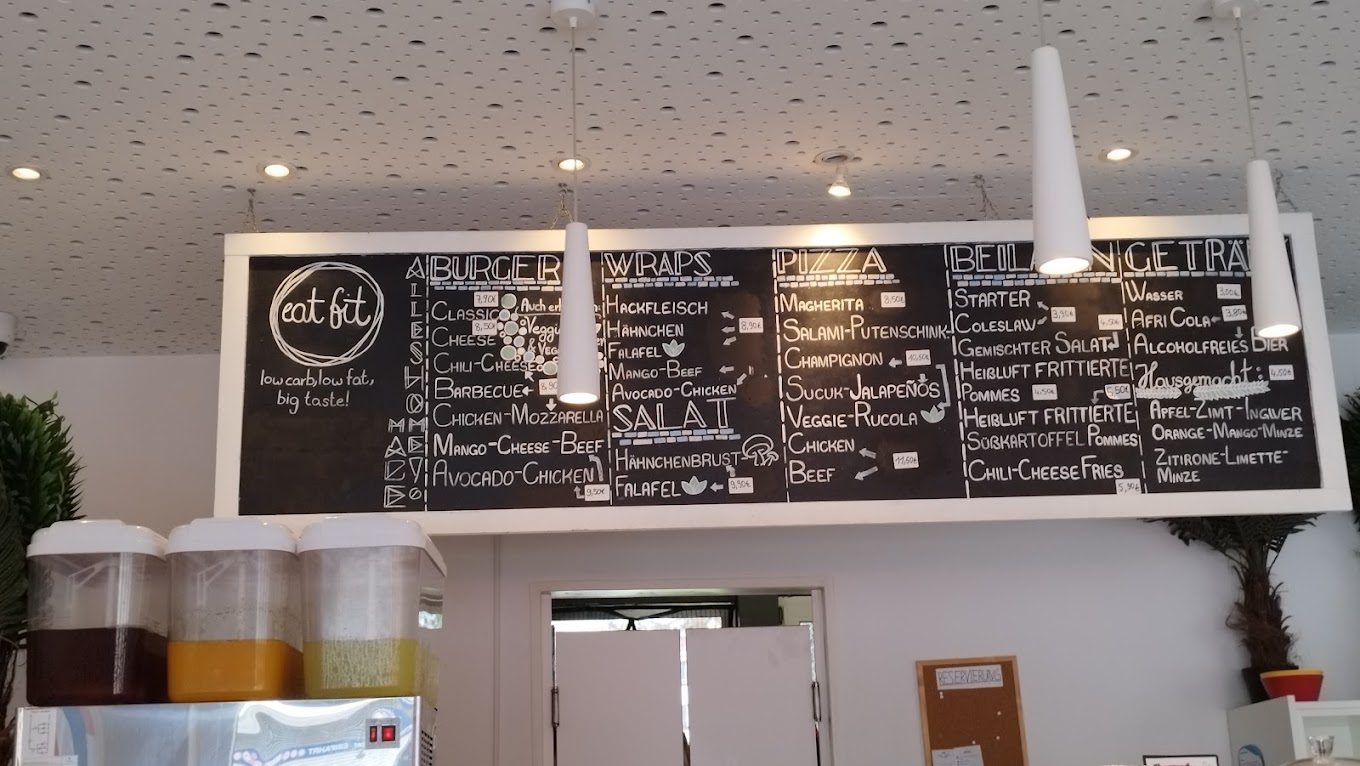 eat fit
low carb, low fat,
big taste!
ALLES
HOMEY
MADE
BURGER
7,90€
CLASSIC
8,50
CHEESE
CHILI-CHEESE
BARBECUE
8,90
CHICKEN-MOZZARELLA
MANGO-CHEESE-BEEF
AVOCADO-CHICKEN
9,50€
AUCH
WRAPS
HACKFLEISCH
HÄHNCHEN
8,90€
FALAFEL
MANGO-BEEF
AVOCADO-CHICKEN
SALAT
HÄHNCHENBRUST
FALAFEL
9,90€
PIZZA
MAGHERITA 8,50€
SALAMI-PUTENSCHINK
CHAMPIGNON 10,50€
SUCUK-JALAPEÑOS
VEGGIE-RUCOLA
CHICKEN
BEEF
11,50€
BEIL
STARTER
COLESLAW 3,90€
4,50€
GEMISCHTER SALAT
HEIßLUFT FRITTIERTE
POMMES 4,50€
5,50€
HEIßLUFT FRITTIERTE
SÜßKARTOFFEL POMMES
CHILI-CHEESE FRIES
5,90€
GETRÄ
WASSER 3,00€
AFRI COLA 3,80€
ALCOHOLFREIES BIER
Hausgemacht: 4,50€
APFEL-ZIMT-INGWER
ORANGE-MANGO-MINZE
ZITIRONE-LIMETTE-
MINZE
RESERVIERUNG